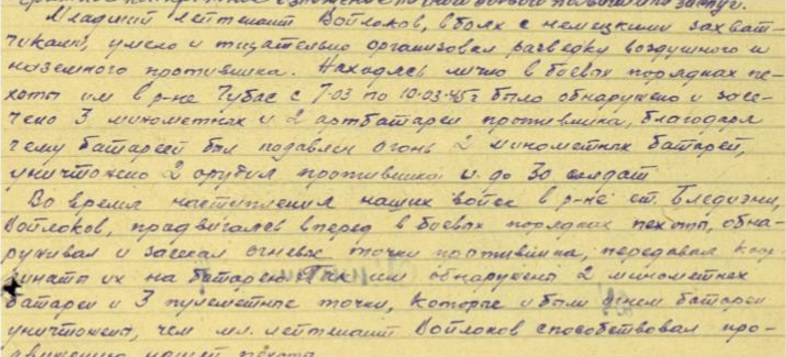 краткое конкретное изложение личного боевого подвига или заслуг.
Младший лейтенант Войлоков, в боях с немецкими захват-
чиками, умело и тщательно организовал разведку воздушного и
наземного противника. Находясь лично в боевых порядках пе-
хоты им в р-не Губас с 7.03 по 10.03.45г было обнаружено и засе-
чено 3 минометных и 2 артбатареи противника, благодаря
чему батареей был подавлен огонь 2 минометных батарей,
уничтожено 2 орудия противника и до 30 солдат
Во время наступления наших войск в р-не ст.
Войлоков, продвигаясь вперед в боевых порядках пехоты, обна-
руживал и засекал огневые точки противника, передавал коор-
динаты их на батарею. Так им обнаружена 2 минометных
батареи и 3 пулеметные точки, которые и были огнем батареи
уничтожены, чем мл. лейтенант Войлоков способствовал про-
движению нашей пехоты